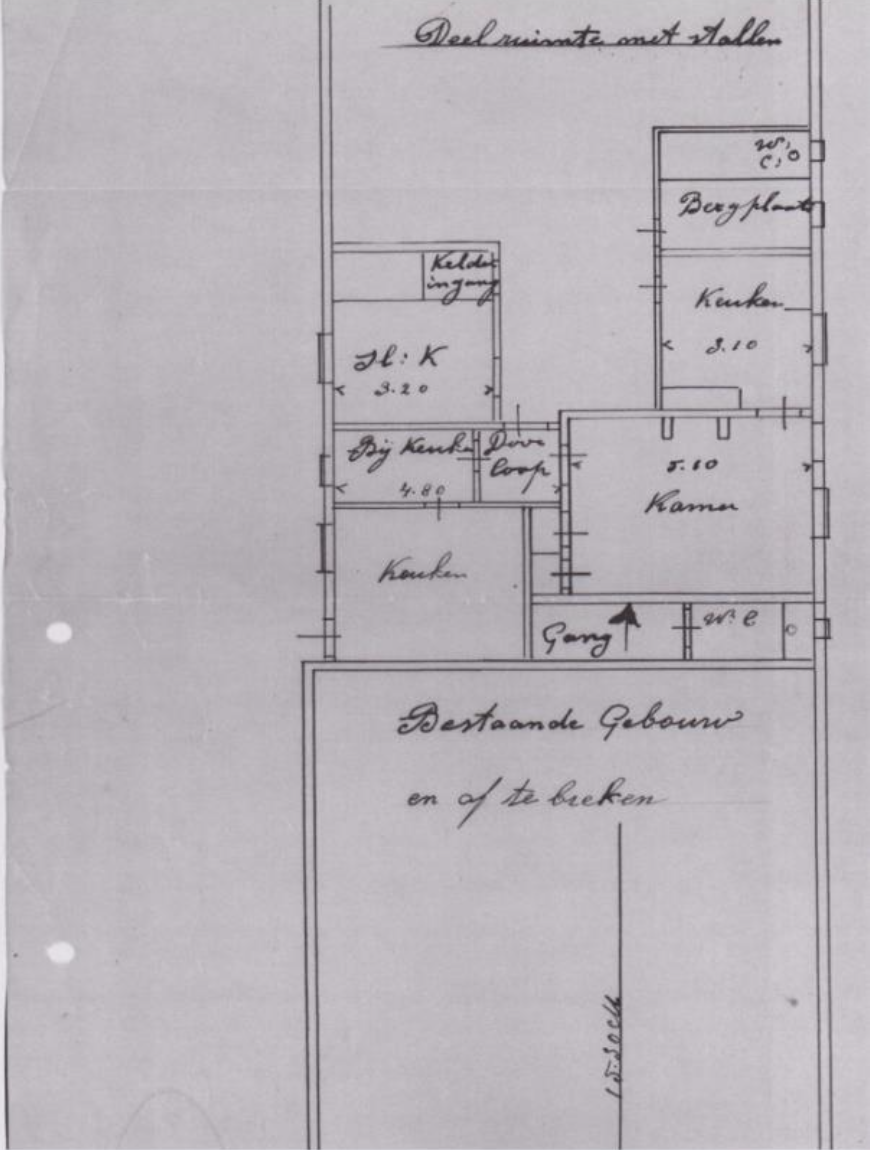 Deel ruimte met stallen
W,
C,
Bergplaats
Kelder
ingang
Keuken
3.10
Sl: K
3.20
Bij Keuken
4.80
Door
loop
5.10
Kamer
Keuken
Gang
W. C
Bestaande Gebouw
en af te breken